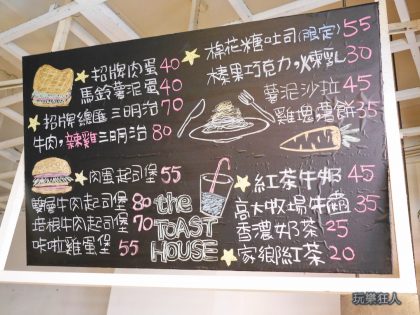 招牌肉蛋 40
馬鈴薯泥蛋 40
招牌總匯三明治 70
牛肉,辣雞三明治 80
肉蛋起司堡 55
雙層牛肉起司堡 80
培根牛肉起司堡 70
咔啦雞蛋堡 55
the TOAST HOUSE
棉花糖吐司(限定) 55
榛果巧克力,煉乳 30
薯泥沙拉 45
雞塊薯餅 35
紅茶牛奶 45
高大牧場牛奶 35
香濃奶茶 25
家鄉紅茶 20
玩樂狂人